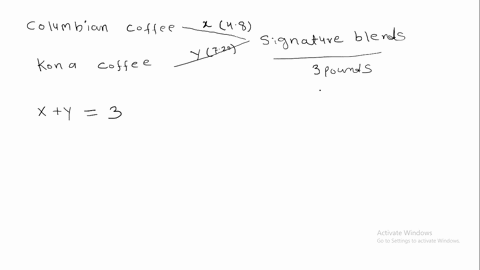 Columbian coffee x (4.8)
Signature blends
Kona coffee y (7.20)
3 pounds
x + y = 3
Activate Windows
Go to Settings to activate Windows.